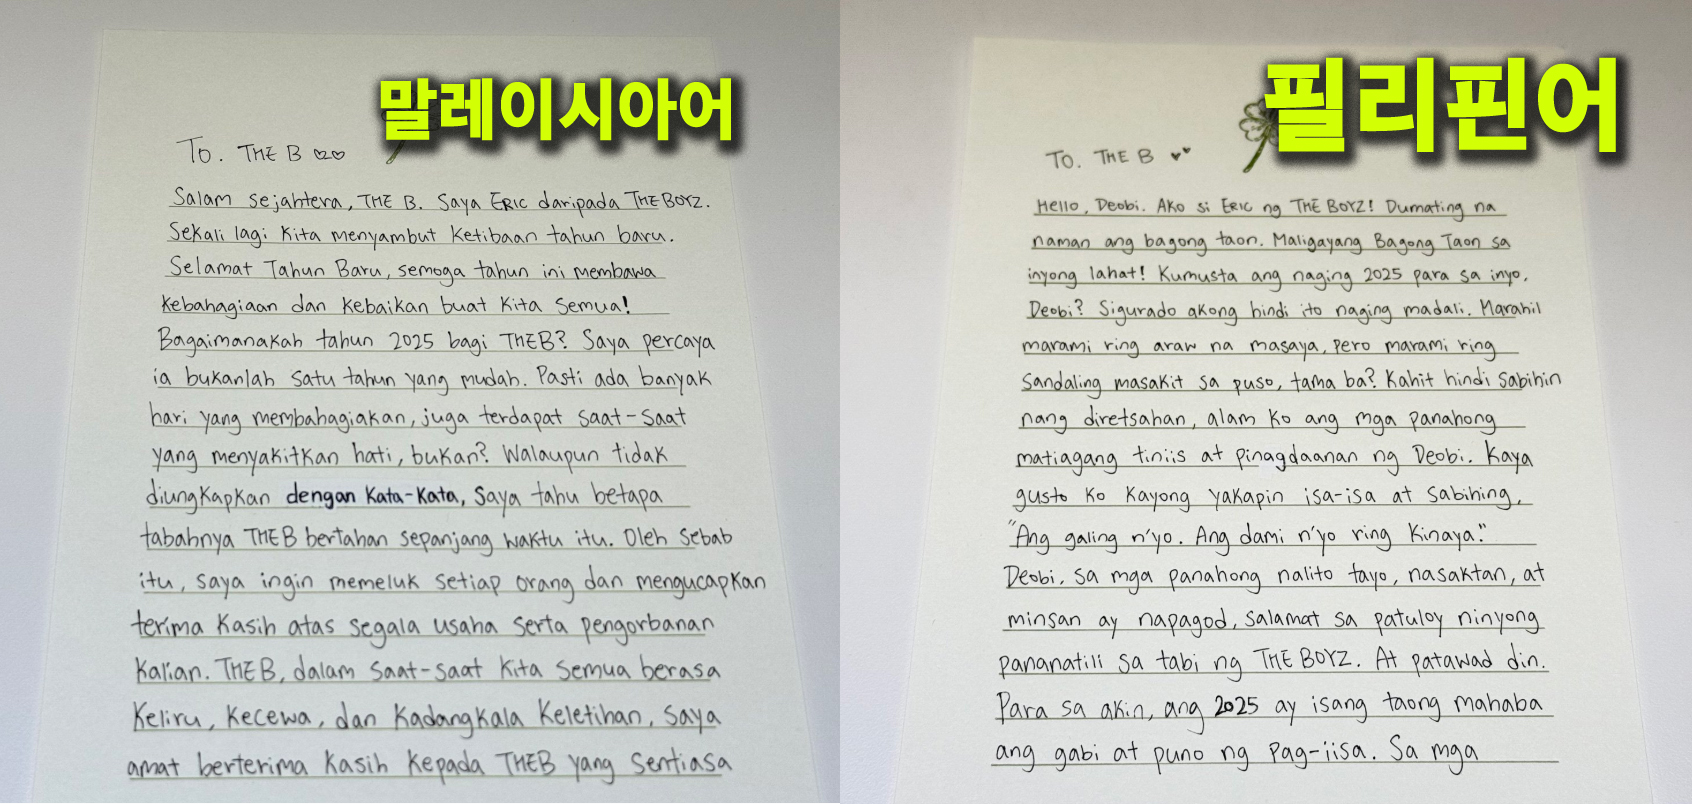 말레이시아어
To. THE B ♡♡
Salam sejahtera, THE B. Saya ERIC daripada THE BOYZ.
Sekali lagi kita menyambut ketibaan tahun baru.
Selamat Tahun Baru, semoga tahun ini membawa
kebahagiaan dan kebaikan buat kita semua!
Bagaimanakah tahun 2025 bagi THE B? Saya percaya
ia bukanlah satu tahun yang mudah. Pasti ada banyak
hari yang membahagiakan, juga terdapat saat-saat
yang menyakitkan hati, bukan? Walaupun tidak
diungkapkan dengan kata-kata, saya tahu betapa
tabahnya THE B bertahan sepanjang waktu itu. Oleh sebab
itu, saya ingin memeluk setiap orang dan mengucapkan
terima kasih atas segala usaha serta pengorbanan
kalian. THE B, dalam saat-saat kita semua berasa
keliru, kecewa, dan kadangkala keletihan, saya
amat berterima kasih kepada THE B yang sentiasa
필리핀어
To. THE B ♥♥
Hello, Deobi. Ako si ERIC ng THE BOYZ! Dumating na
naman ang bagong taon. Maligayang Bagong Taon sa
inyong lahat! Kumusta ang naging 2025 para sa inyo,
Deobi? Sigurado akong hindi ito naging madali. Marahil
marami ring araw na masaya, pero marami ring
sandaling masakit sa puso, tama ba? Kahit hindi sabihin
nang diretsahan, alam ko ang mga panahong
matiagang tiniis at pinagdaanan ng Deobi. Kaya
gusto ko kayong yakapin isa-isa at sabihing,
"Ang galing n'yo. Ang dami n'yo ring kinaya."
Deobi, sa mga panahong nalito tayo, nasaktan, at
minsan ay napagod, salamat sa patuloy ninyong
pananatili sa tabi ng THE BOYZ. At patawad din.
Para sa akin, ang 2025 ay isang taong mahaba
ang gabi at puno ng pag-iisa. Sa mga